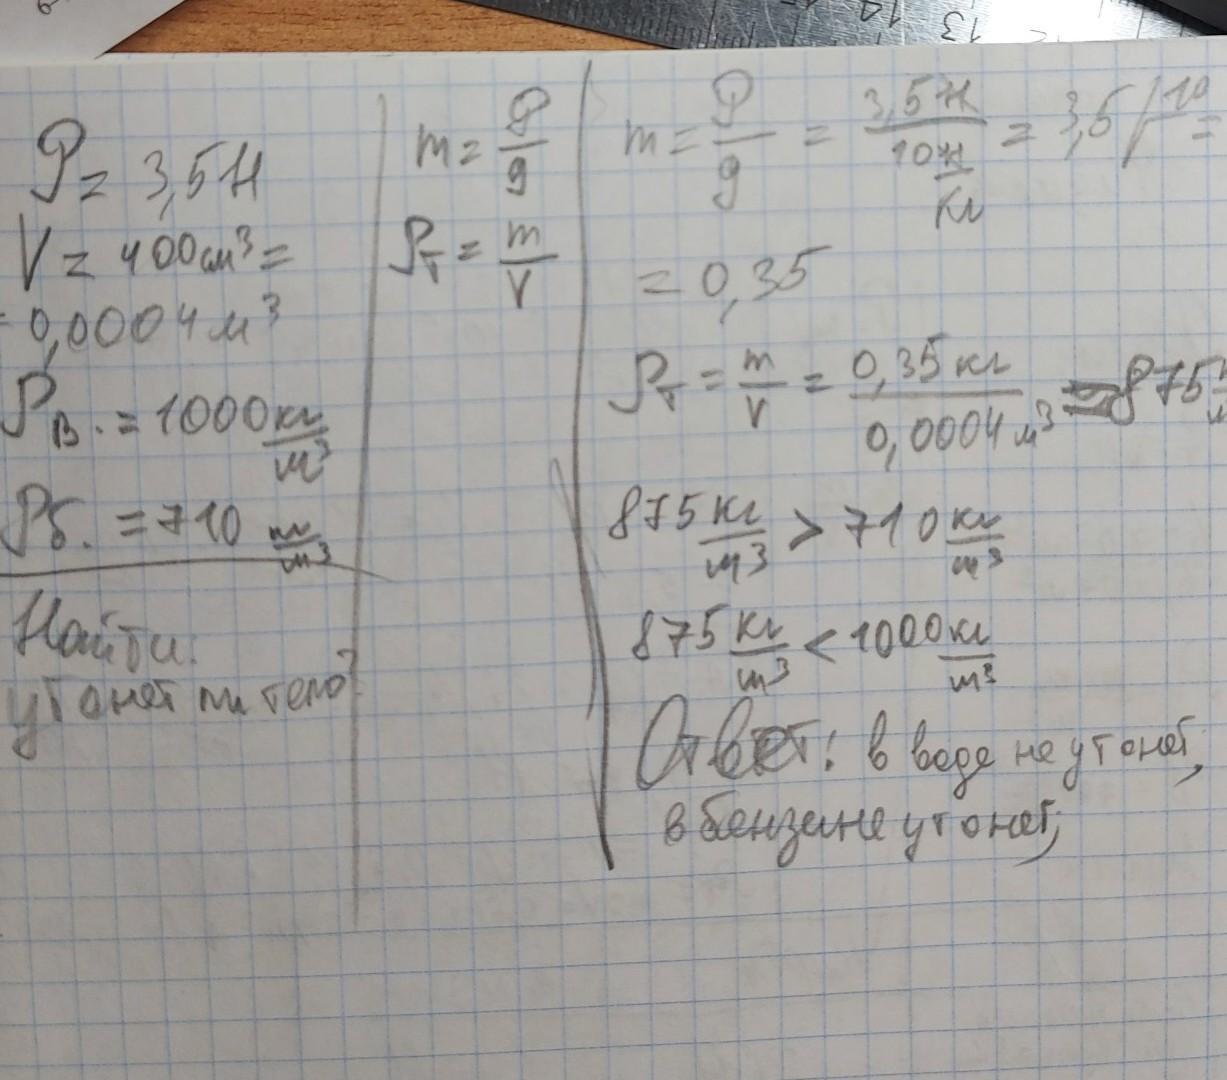 P = 3,5Н
V = 400см³ =
= 0,0004м³
ρв. = 1000 кг/м³
ρб. = 710 кг/м³
Найти:
утонет ли тело?
m = P/g
ρт = m/V
m = P/g = 3,5Н/10Н/кг = 3,5/10 =
= 0,35
ρт = m/V = 0,35 кг/0,0004 м³ = 875
875 кг/м³ > 710 кг/м³
875 кг/м³ < 1000 кг/м³
Ответ: в воде не утонет,
в бензине утонет;
13